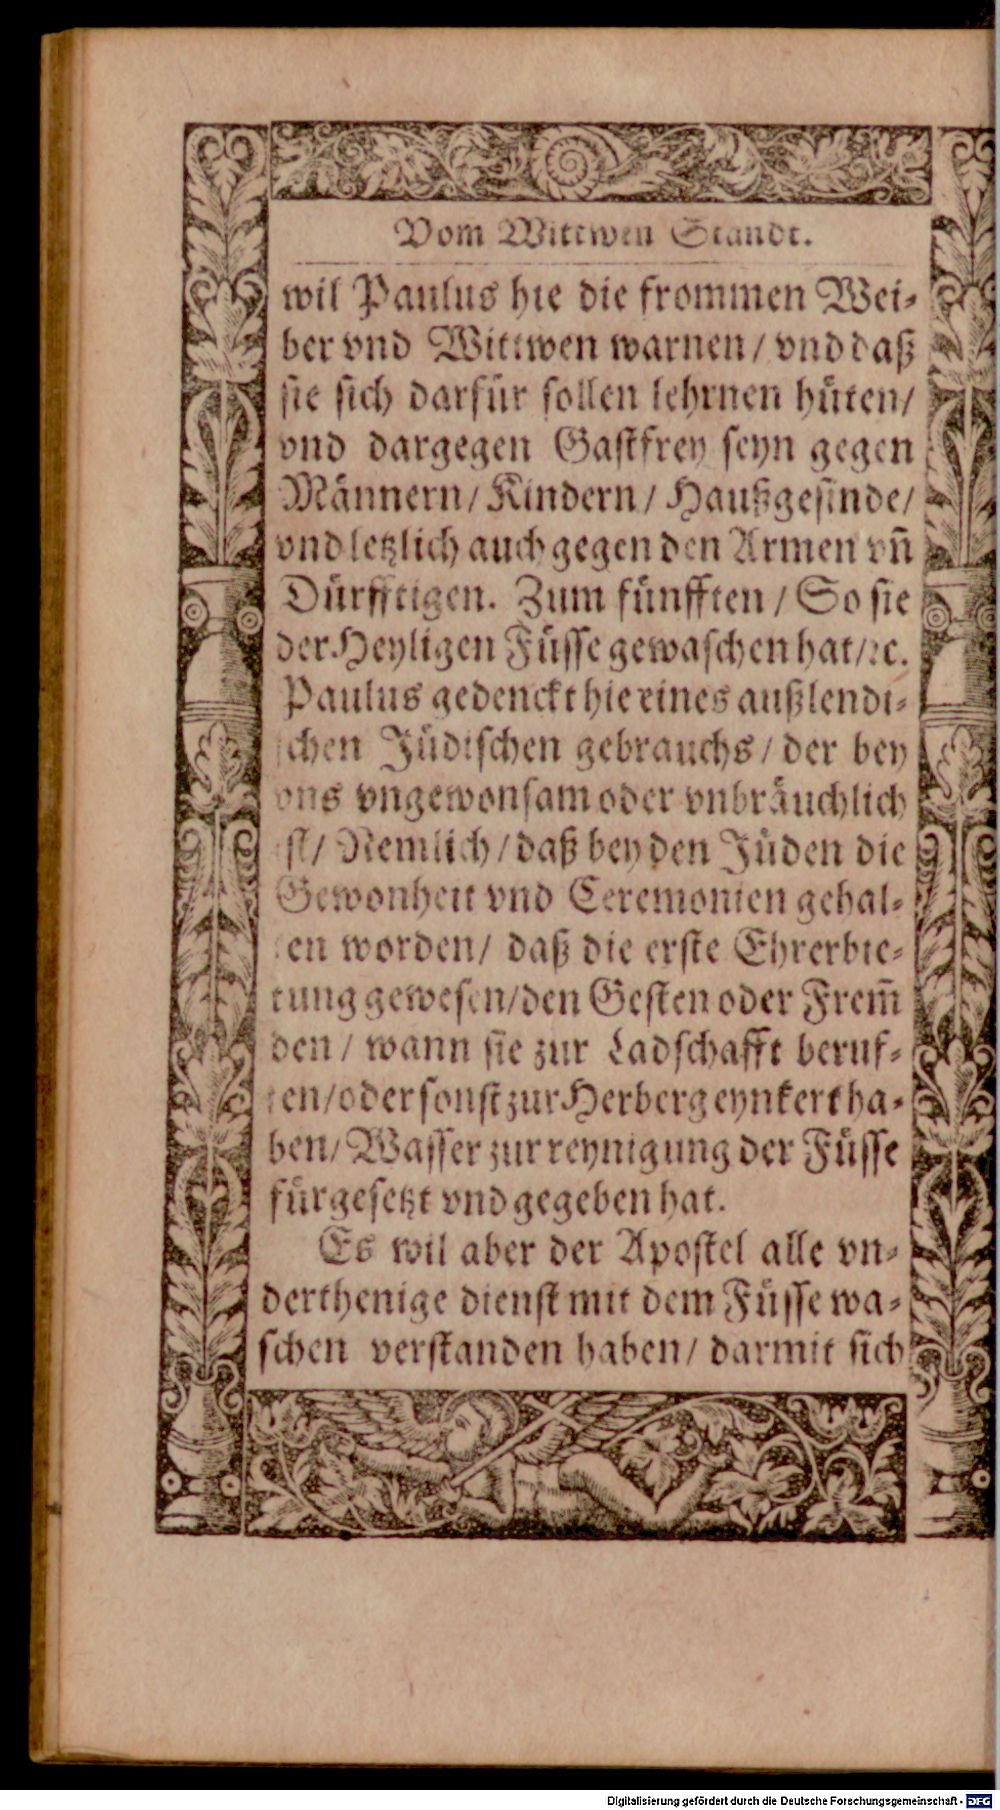 Vom Wittwen Standt.
wil Paulus hie die frommen Wei⸗
ber vnd Wittwen warnen/ vnd daß
sie sich darfür sollen lehrnen hüten/
vnd dargegen Gastfrey seyn gegen
Männern/ Kindern/ Haußgesinde/
vnd letzlich auch gegen den Armen vn̄
Dürfftigen. Zum fünfften/ So sie
der Heyligen Füsse gewaschen hat/ ꝛc.
Paulus gedenckt hie eines außlendi⸗
schen Jüdischen gebrauchs/ der bey
vns vngewonsam oder vnbräuchlich
ist/ Nemlich/ daß bey den Jüden die
Gewonheit vnd Ceremonien gehal⸗
ten worden/ daß die erste Ehrerbie⸗
tung gewesen/ den Gesten oder Frem̄
den/ wann sie zur Ladschafft beruf⸗
ten/ oder sonst zur Herberg eynkert ha⸗
ben/ Wasser zur reynigung der Füsse
fürgesetzt vnd gegeben hat.
Es wil aber der Apostel alle vn⸗
derthenige dienst mit dem Füsse wa⸗
schen verstanden haben/ darmit sich
Digitalisierung gefördert durch die Deutsche Forschungsgemeinschaft - DFG